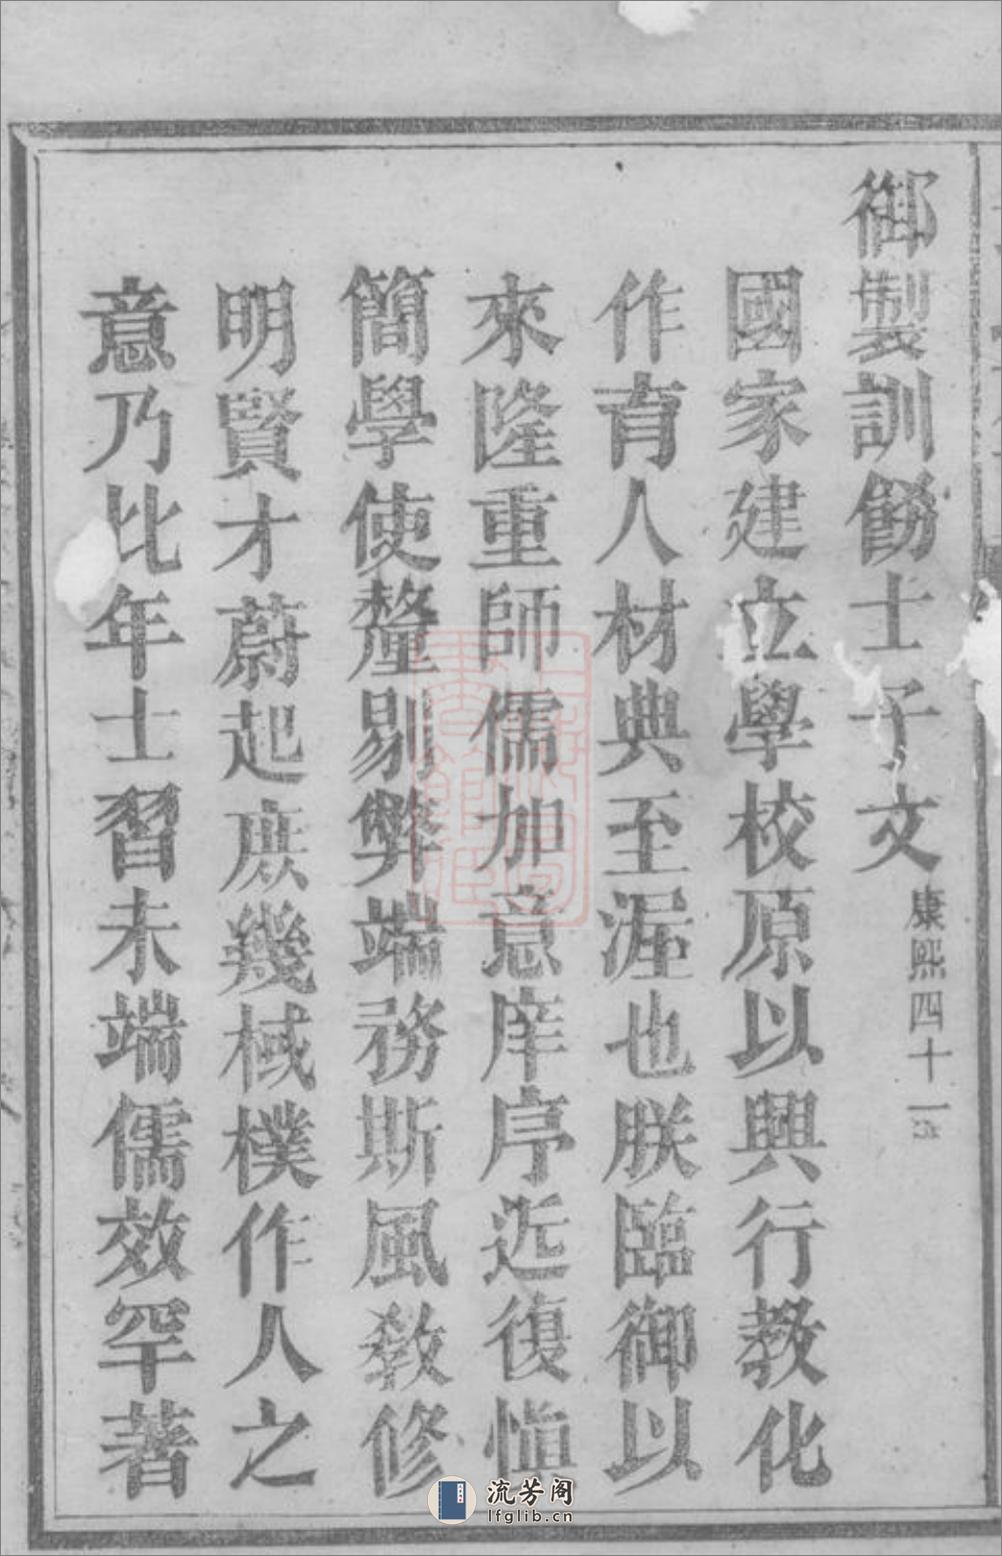 御製訓飭士子文 康熙四十一
國家建立學校原以興行教化
作育人材典至渥也朕臨御以
來隆重師儒加意庠序近復愼
簡學使釐剔弊端務斯風敎修
明賢才蔚起庶幾棫樸作人之
意乃比年士習未端儒效罕著
流芳阁
lfglib.cn